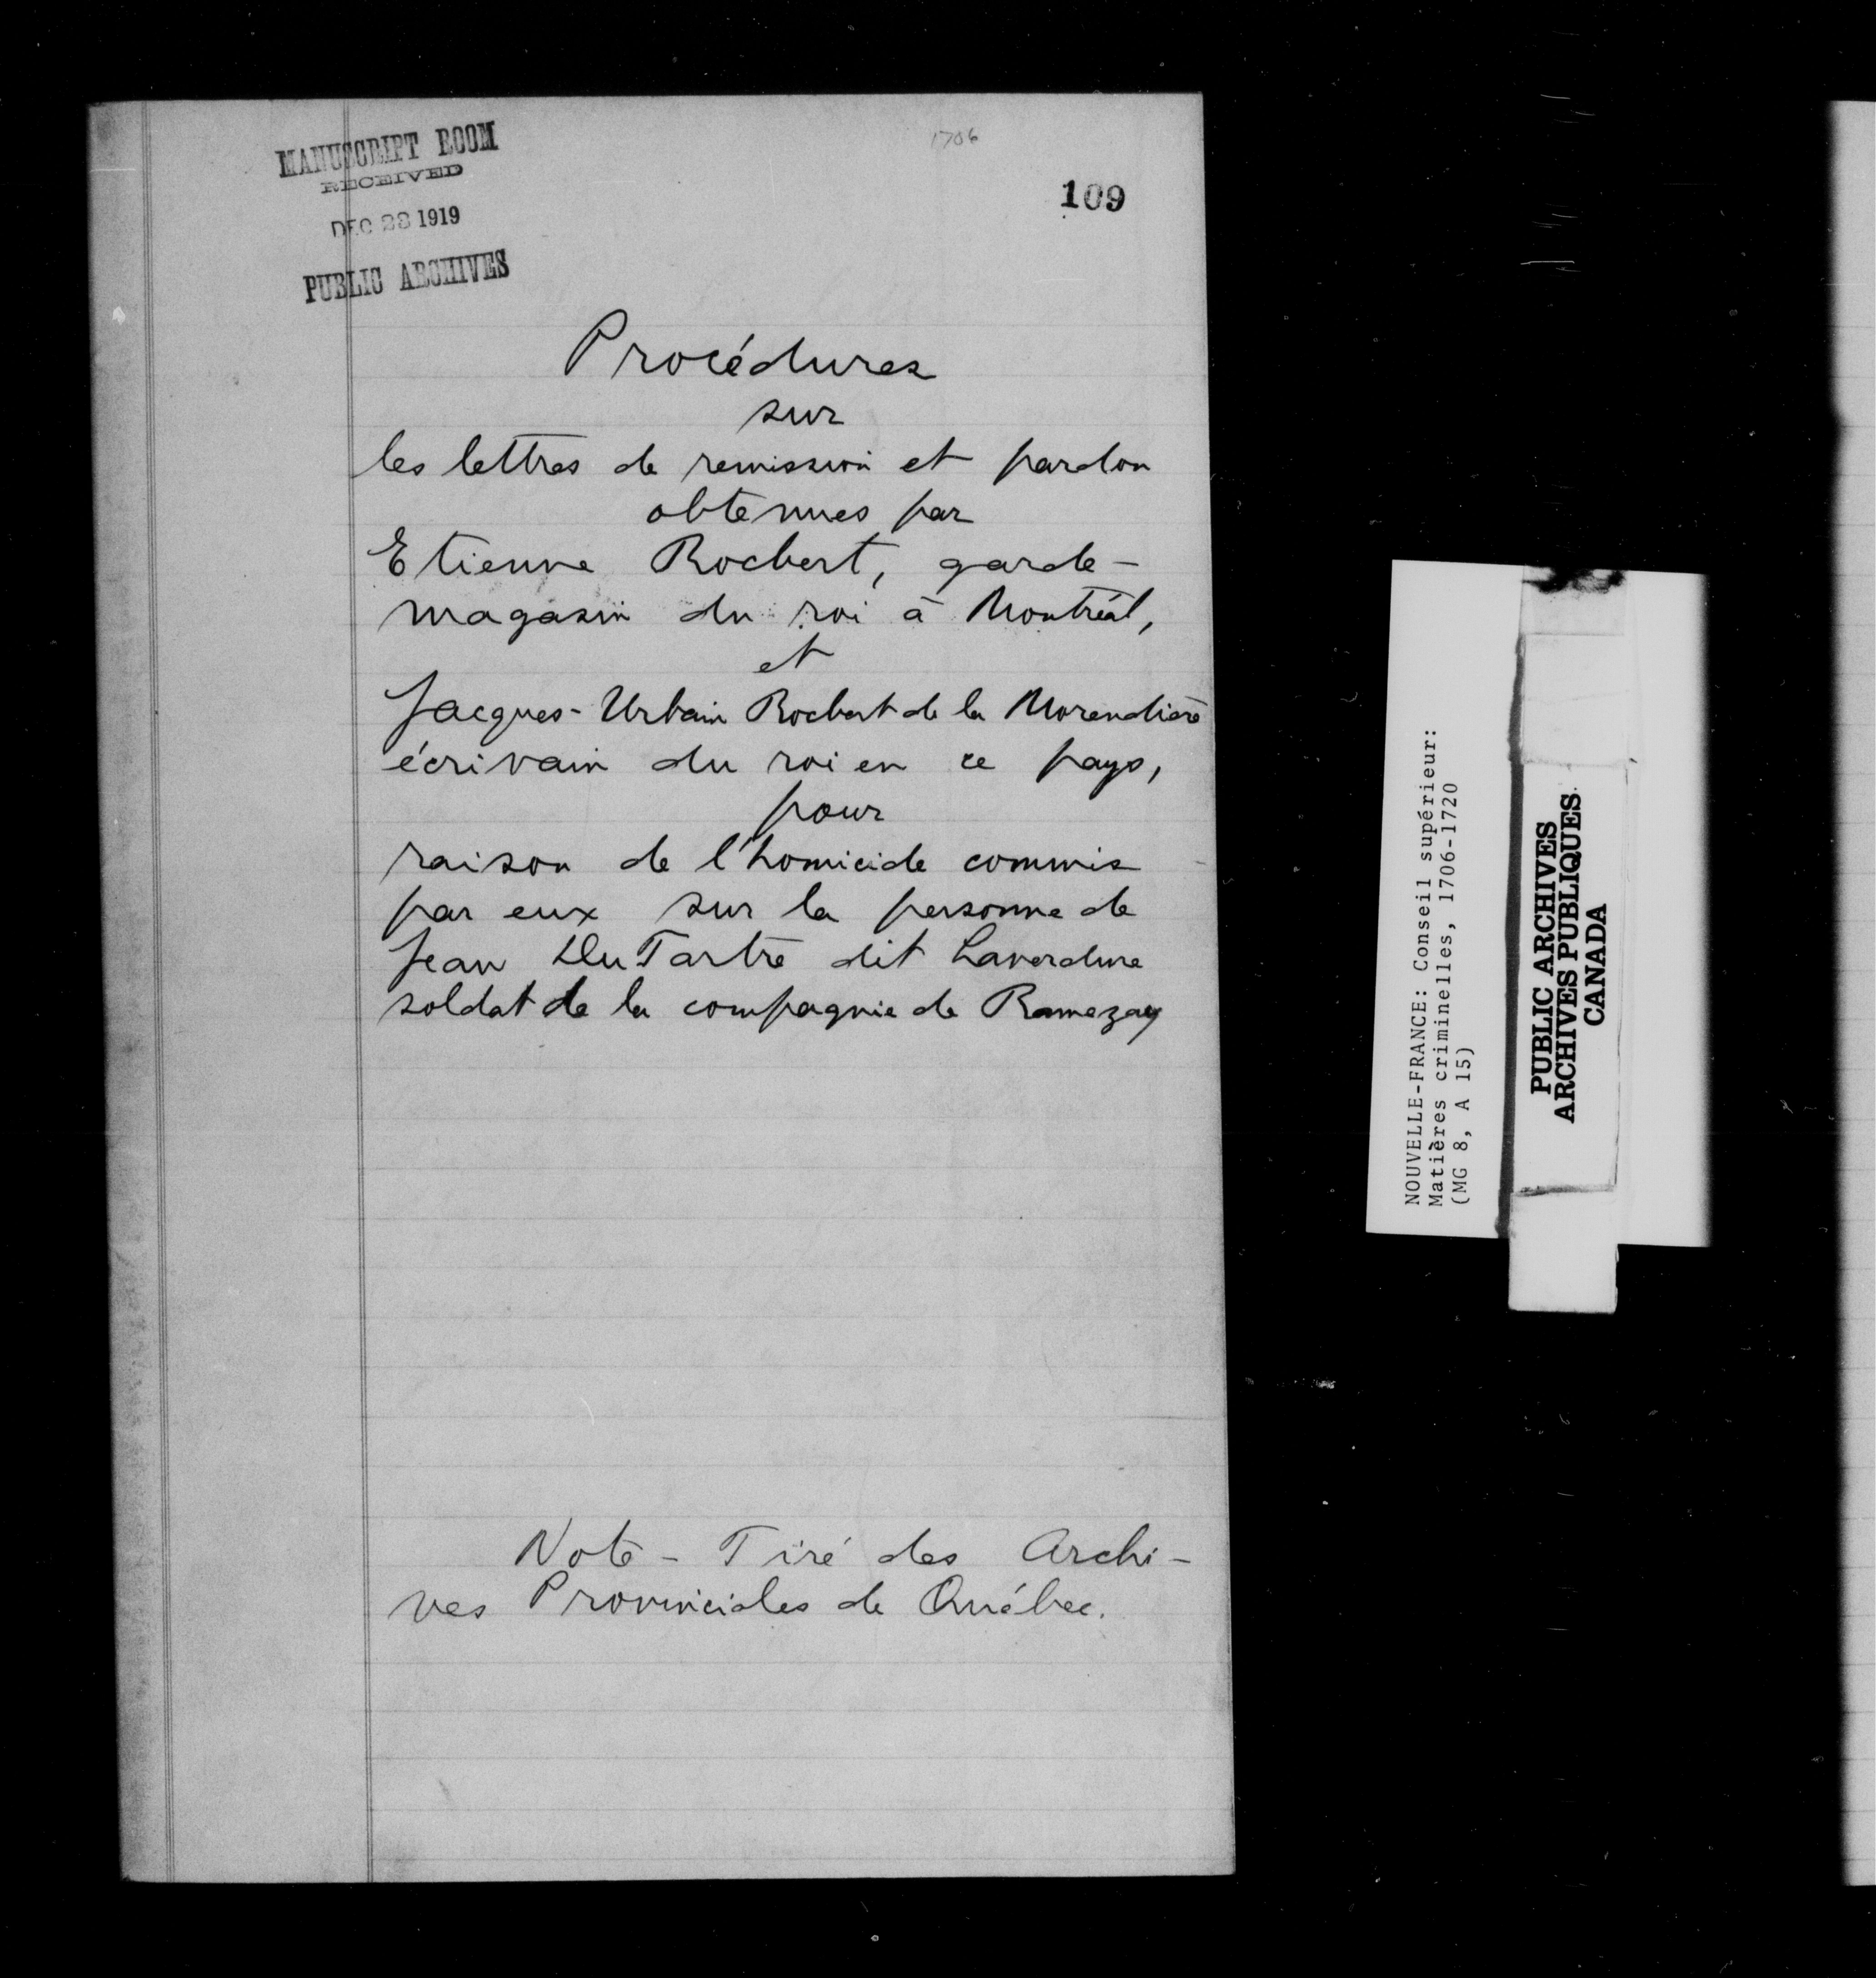 MANUSCRIPT ROOM
RECEIVED
DEC 23 1919
PUBLIC ARCHIVES
1706
109
Procédures
sur
les lettres de remission et pardon
obtenues par
Etienne Rocbert, garde-
magasin du roi à Montréal,
et
Jacques-Urbain Rocbert de la Morandière
écrivain du roi en ce pays,
pour
raison de l'homicide commis
par eux sur la personne de
Jean DuTartre dit Laverdure
soldat de la compagnie de Ramezay
Note - Tiré des Archi-
ves Provinciales de Québec.
NOUVELLE-FRANCE: Conseil supérieur:
Matières criminelles, 1706-1720
(MG 8, A 15)
PUBLIC ARCHIVES
ARCHIVES PUBLIQUES
CANADA